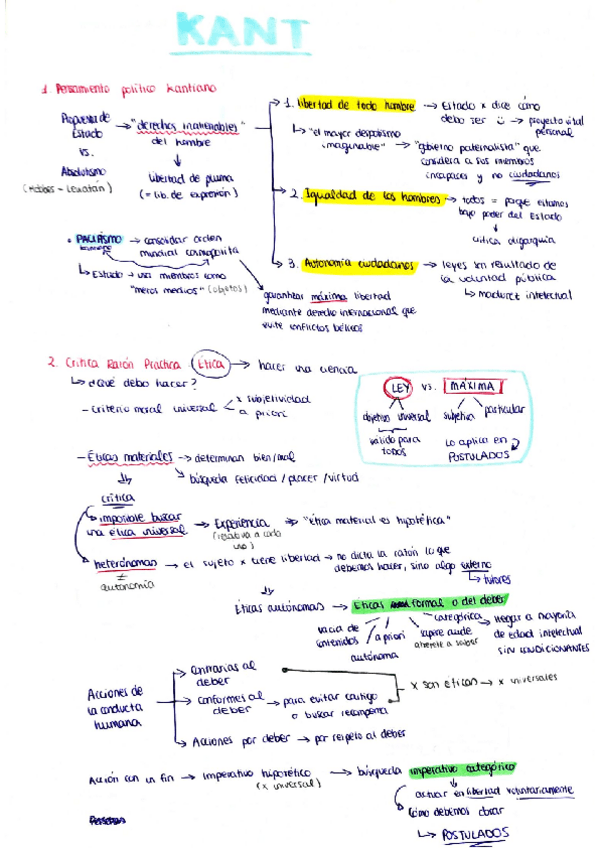 KANT
1. Pensamiento político kantiano
Propuesta de Estado → "derechos inalienables" del hombre
vs.
Absolutismo
(Hobbes - Leviatán)
libertad de pluma
(= lib. de expresión)
1. libertad de todo hombre → Estado x dice cómo
debo ser → proyecto vital
personal
↳ "el mayor despotismo
imaginable" → "gobierno paternalista" que
considera a sus miembros
incapaces y no ciudadanos
2. Igualdad de los hombres → todos = porque estamos
bajo poder del Estado
crítica oligarquía
3. Autonomía ciudadanos → leyes son resultado de
la voluntad pública
↳ madurez intelectual
• PACIFISMO → consolidar orden
mundial cosmopolita
↳ Estado → usa miembros como
"meros medios" (objetos)
garantizar máxima libertad
mediante derecho internacional que
evite conflictos bélicos
2. Crítica Razón Práctica Ética → hacer una ciencia
↳ ¿Qué debo hacer?
- Criterio moral universal < x subjetividad
a priori
LEY vs. MÁXIMA
objetiva universal subjetiva particular
válido para
todos
Lo aplica en
POSTULADOS
- Éticas materiales → determinan bien/mal
búsqueda felicidad / placer / virtud
crítica
imposible buscar
una ética universal → Experiencia → "Ética material es hipotética"
(relativa a cada
uno)
heterónomas → el sujeto x tiene libertad → no dicta la razón lo que
debemos hacer, sino algo externo
↳ tutores
≠
autonomía
Éticas autónomas → Éticas formal o del deber
vacía de
contenidos
a priori
autónoma
categórica
sapere aude
atrévete a saber
→ llegar a mayoría
de edad intelectual
SIN CONDICIONANTES
Acciones de
la conducta
humana
Contrarias al
deber
Conformes al
deber → para evitar castigo
o buscar recompensa
x son éticas → x universales
Acciones por deber → por respeto al deber
Acción con un fin → imperativo hipotético → búsqueda imperativo categórico
(x universal)
actuar en libertad voluntariamente
Cómo debemos obrar
↳ POSTULADOS